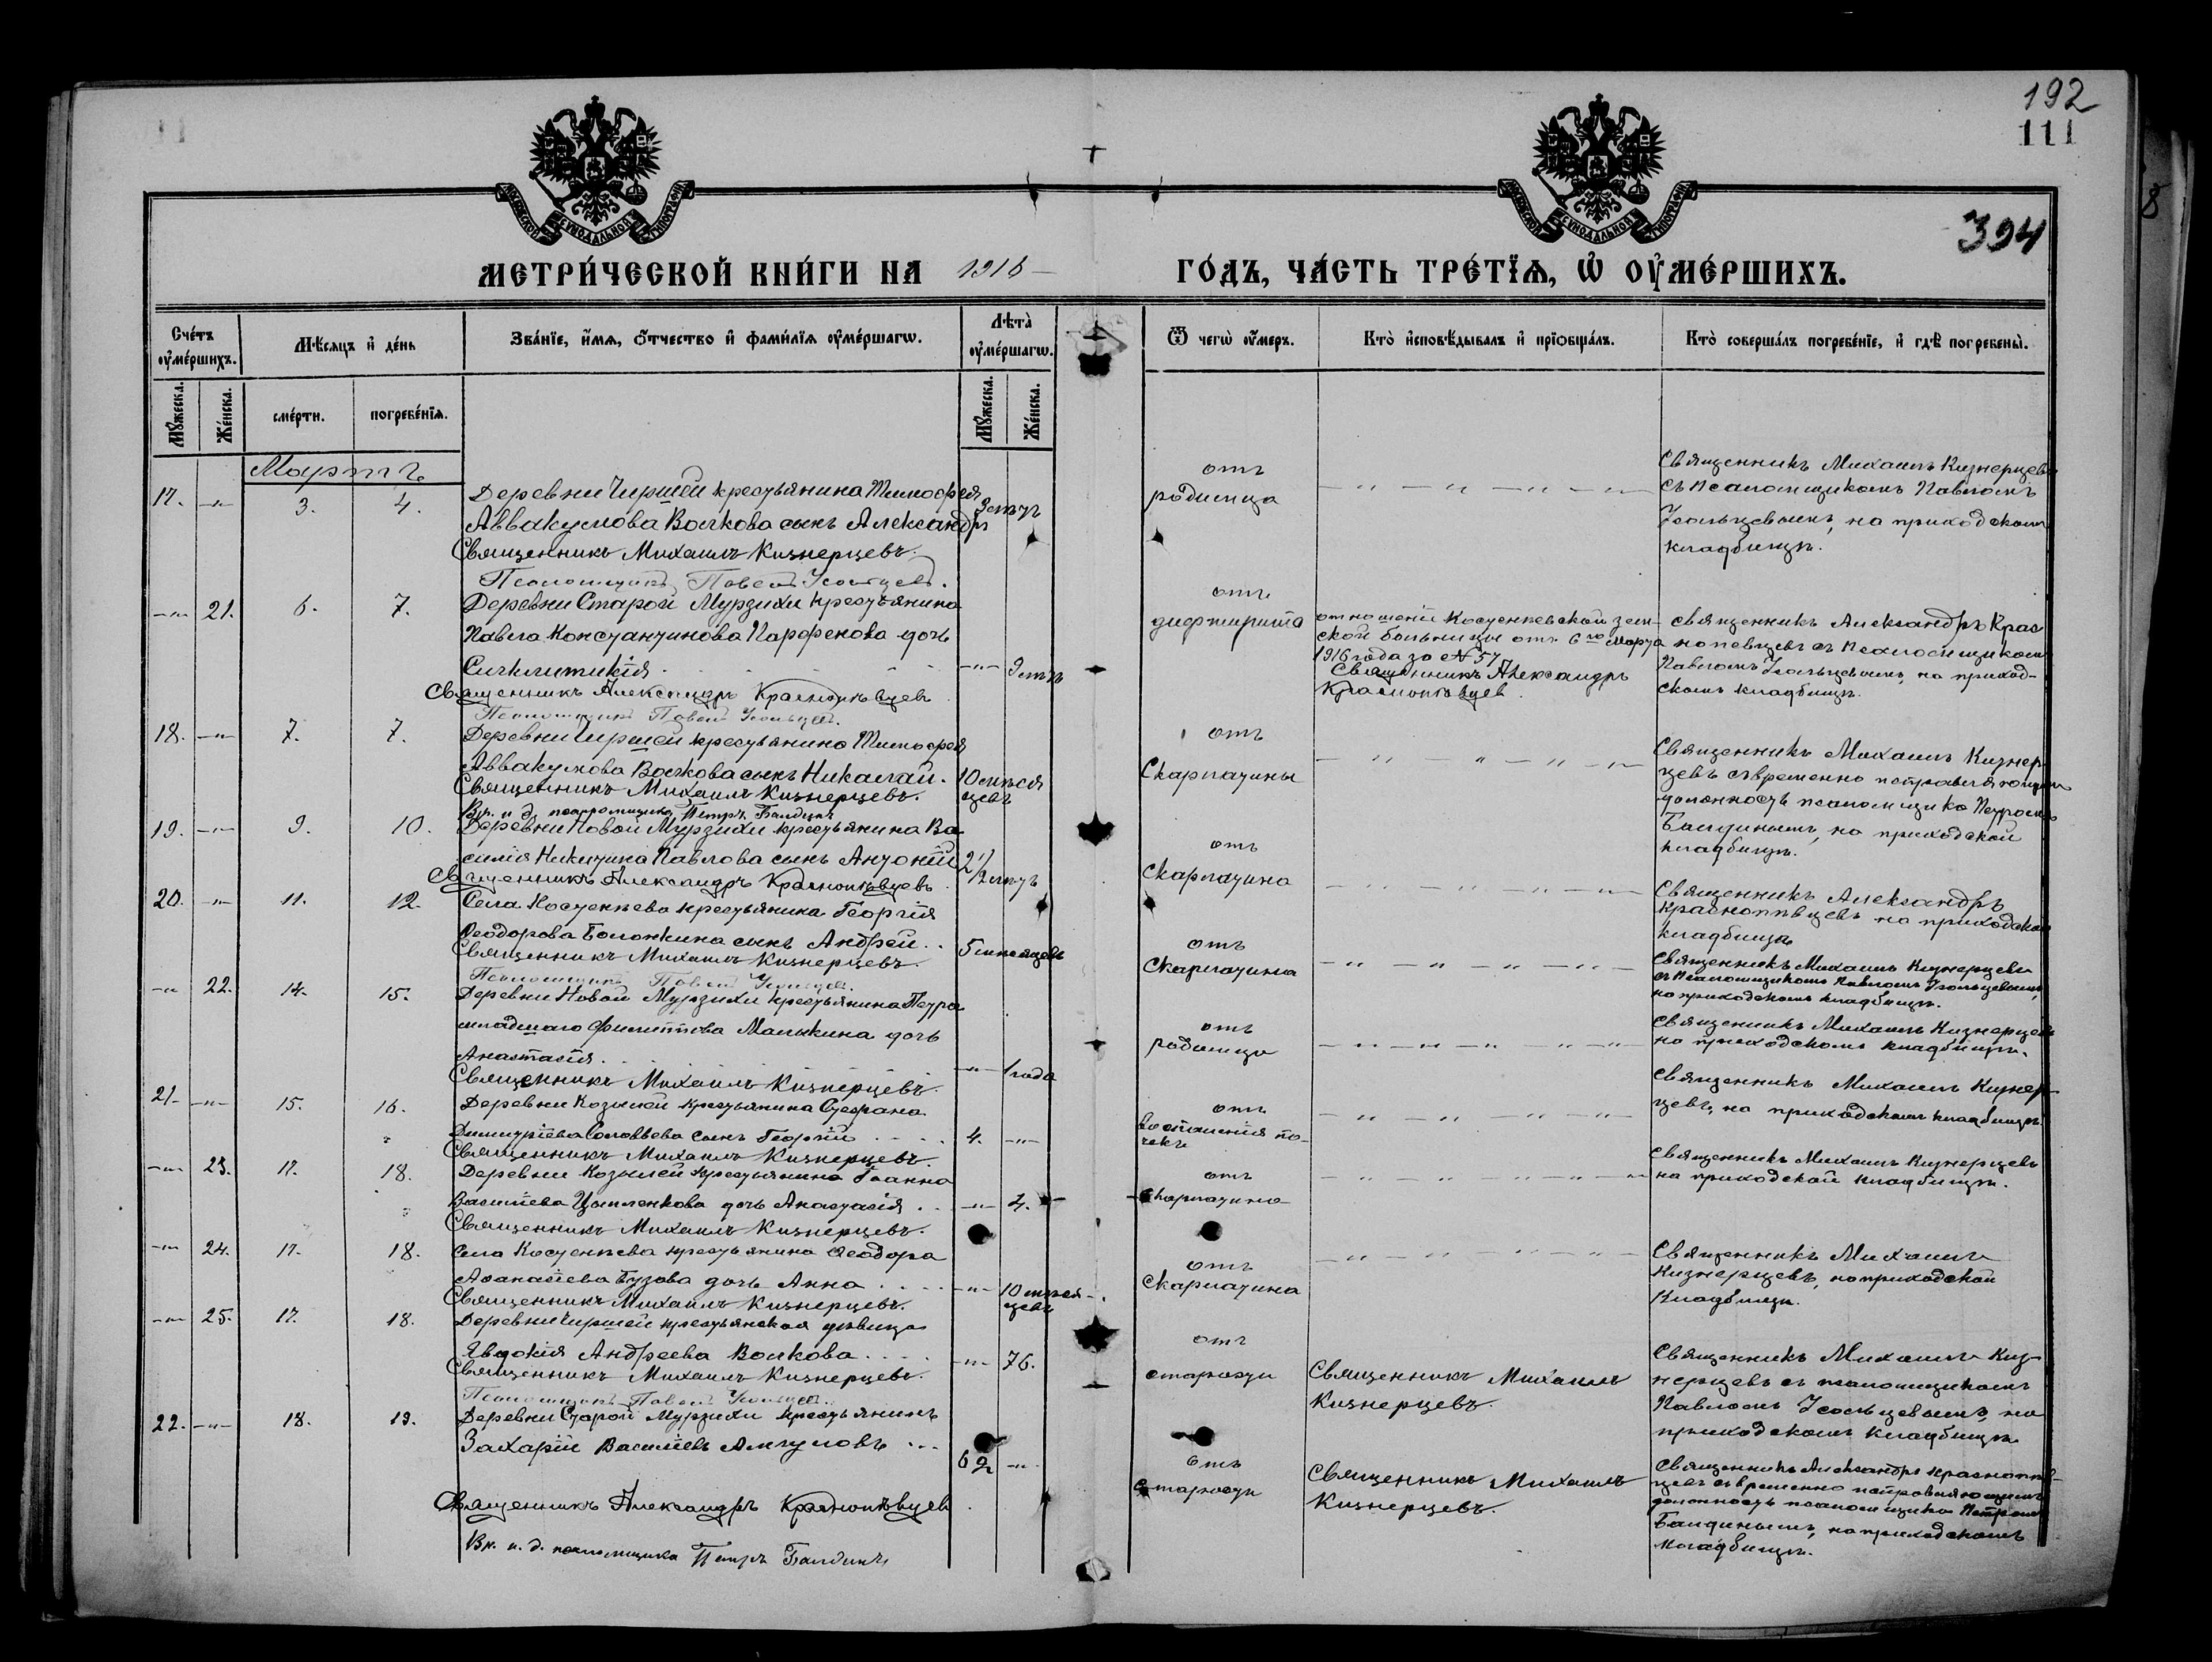 192
111
394
МОСКОВСКОЙ СѴНОДАЛЬНОЙ ТИПОГРАФІИ
МОСКОВСКОЙ СѴНОДАЛЬНОЙ ТИПОГРАФІИ
МЕТРИ́ЧЕСКОЙ КНИ́ГИ НА 1916 ГО́ДЪ, ЧА́СТЬ ТРЕ́ТЇѦ, Ѡ҆ ОУ҆МЕ́РШИХЪ.
Сче́тъ оу҆ме́ршихъ.
Мѣ́сяцъ и҆ де́нь
Зва́нїе, и҆́мѧ, ѻ҆́тчество и҆ фами́лїѧ оу҆ме́ршагѡ.
Лѣ́та оу҆ме́ршагѡ.
Ѿ чегѡ̀ оу҆́меръ.
Кто̀ и҆сповѣ́дывалъ и҆ прїѡбща́лъ.
Кто̀ соверша́лъ погребе́нїе, и҆ гдѣ̀ погребены̀.
Му́жеска. Же́нска. сме́рти. погребе́нїѧ. Му́жеска. Же́нска.
Мартъ
17. —„— 3. 4. Деревни Чиршей крестьянина Тимофея
Аввакумова Волкова сынъ Александръ 3 лѣтъ
Священникъ Михаилъ Кизнерцевъ.
Псаломщикъ Павелъ Усольцевъ.
отъ родимца
—„—„—„—„—
Священникъ Михаилъ Кизнерцевъ
съ псаломщикомъ Павломъ
Усольцевымъ, на приходскомъ
кладбищѣ.
—„— 21. 6. 7. Деревни Старой Мурзихи крестьянина
Павла Константинова Парфенова дочь
Синклитикія —„— 9 лѣтъ
Священникъ Александръ Краснопѣвцевъ
Псаломщикъ Павелъ Усольцевъ.
отъ дифтерита
отношеніи Костенѣевской зем-
ской больницы отъ 6го Марта
1916 года за № 57
Священникъ Александръ
Краснопѣвцев
священникъ Александръ Крас
нопевцевъ съ псаломщикомъ
Павломъ Усольцевымъ, на приход-
скомъ кладбищѣ.
18. —„— 7. 7. Деревни Чиршей крестьянина Тимофея
Аввакумова Волкова сынъ Николай. 10 мѣся
цевъ
Священникъ Михаилъ Кизнерцевъ.
Вр. и д. псаломщика Петръ Балдинъ
отъ
Скарлатины
—„—„—„—
Священникъ Михаилъ Кизнер
цевъ съ временно исправляющимъ
должность псаломщика Петромъ
Балдинымъ, на приходской
кладбищѣ.
19. —„— 9. 10. Деревни Новой Мурзихи крестьянина Ва
силія Никитина Павлова сынъ Антоній 2 1/2 лѣтъ
Священникъ Александръ Краснопѣвцевъ
отъ
Скарлатина
—„—„—„—„—
Священникъ Александръ
Краснопѣвцевъ на приходской
кладбища
20. —„— 11. 12. Села Костенѣева крестьянина Георгія
Ѳеодорова Болонкина сынъ Андрей 5 мѣсяцевъ
Священникъ Михаилъ Кизнерцевъ.
Псаломщикъ Павелъ Усольцев.
отъ
Скарлатина
—„—„—„—„—
Священникъ Михаилъ Кизнерцевъ
съ Псаломщикомъ Павломъ Усольцевымъ,
на приходскомъ кладбищѣ.
—„ 22. 14. 15. Деревни Новой Мурзихи крестьянина Петра
младшаго Филиппова Малыкина дочь
Анастасія —„— 1 года
Священникъ Михаилъ Кизнерцевъ.
отъ
родимца
—„—„—„—„—
Священникъ Михаилъ Кизнерцевъ
на приходскомъ кладбищѣ.
21. —„— 15. 16. Деревни Козылей крестьянина Стефана
Димитріева Соловьева сынъ Георгій 4. —„—
Священникъ Михаилъ Кизнерцевъ.
отъ
воспаленія по-
чекъ
—„—„—„—
Священникъ Михаилъ Кизнер-
цевъ, на приходскомъ кладбищѣ.
—„— 23. 17. 18. Деревни Козылей крестьянина Іоанна
Василіева Цыпленкова дочь Анастасія —„— 4.
Священникъ Михаилъ Кизнерцевъ.
отъ
скарлатина
—„—„—„—„—
Священникъ Михаилъ Кизнерцевъ
на приходской кладбищѣ.
—„— 24. 17. 18. Села Костенѣева крестьянина Ѳеодора
Аѳанасіева Бузова дочь Анна —„— 10 мѣся-
цевъ
Священникъ Михаилъ Кизнерцевъ.
отъ
Скарлатина
—„—„—„—
Священникъ Михаилъ
Кизнерцевъ, на приходской
Кладбищѣ.
—„— 25. 17. 18. Деревни Чиршей крестьянская дѣвица
Явдокія Андреева Волкова —„— 76.
Священникъ Михаилъ Кизнерцевъ.
Псаломщикъ Павелъ Усольцев.
отъ
старости
Священникъ Михаилъ
Кизнерцевъ.
Священникъ Михаилъ Киз-
нерцевъ съ псаломщикомъ
Павломъ Усольцевымъ, на
приходскомъ кладбищѣ
22. —„— 18. 19. Деревни Старой Мурзихи крестьянинъ
Захарій Василіевъ 62 —„—
Священникъ Александръ Краснопѣвцев
Вр. и. д. псаломщика Петръ Балдинъ
отъ
старости
Священникъ Михаилъ
Кизнерцевъ.
Священникъ Александръ Краснопѣв-
цевъ съ временно исправляющимъ
должность псаломщика Петромъ
Балдинымъ, на приходскомъ
кладбищѣ.